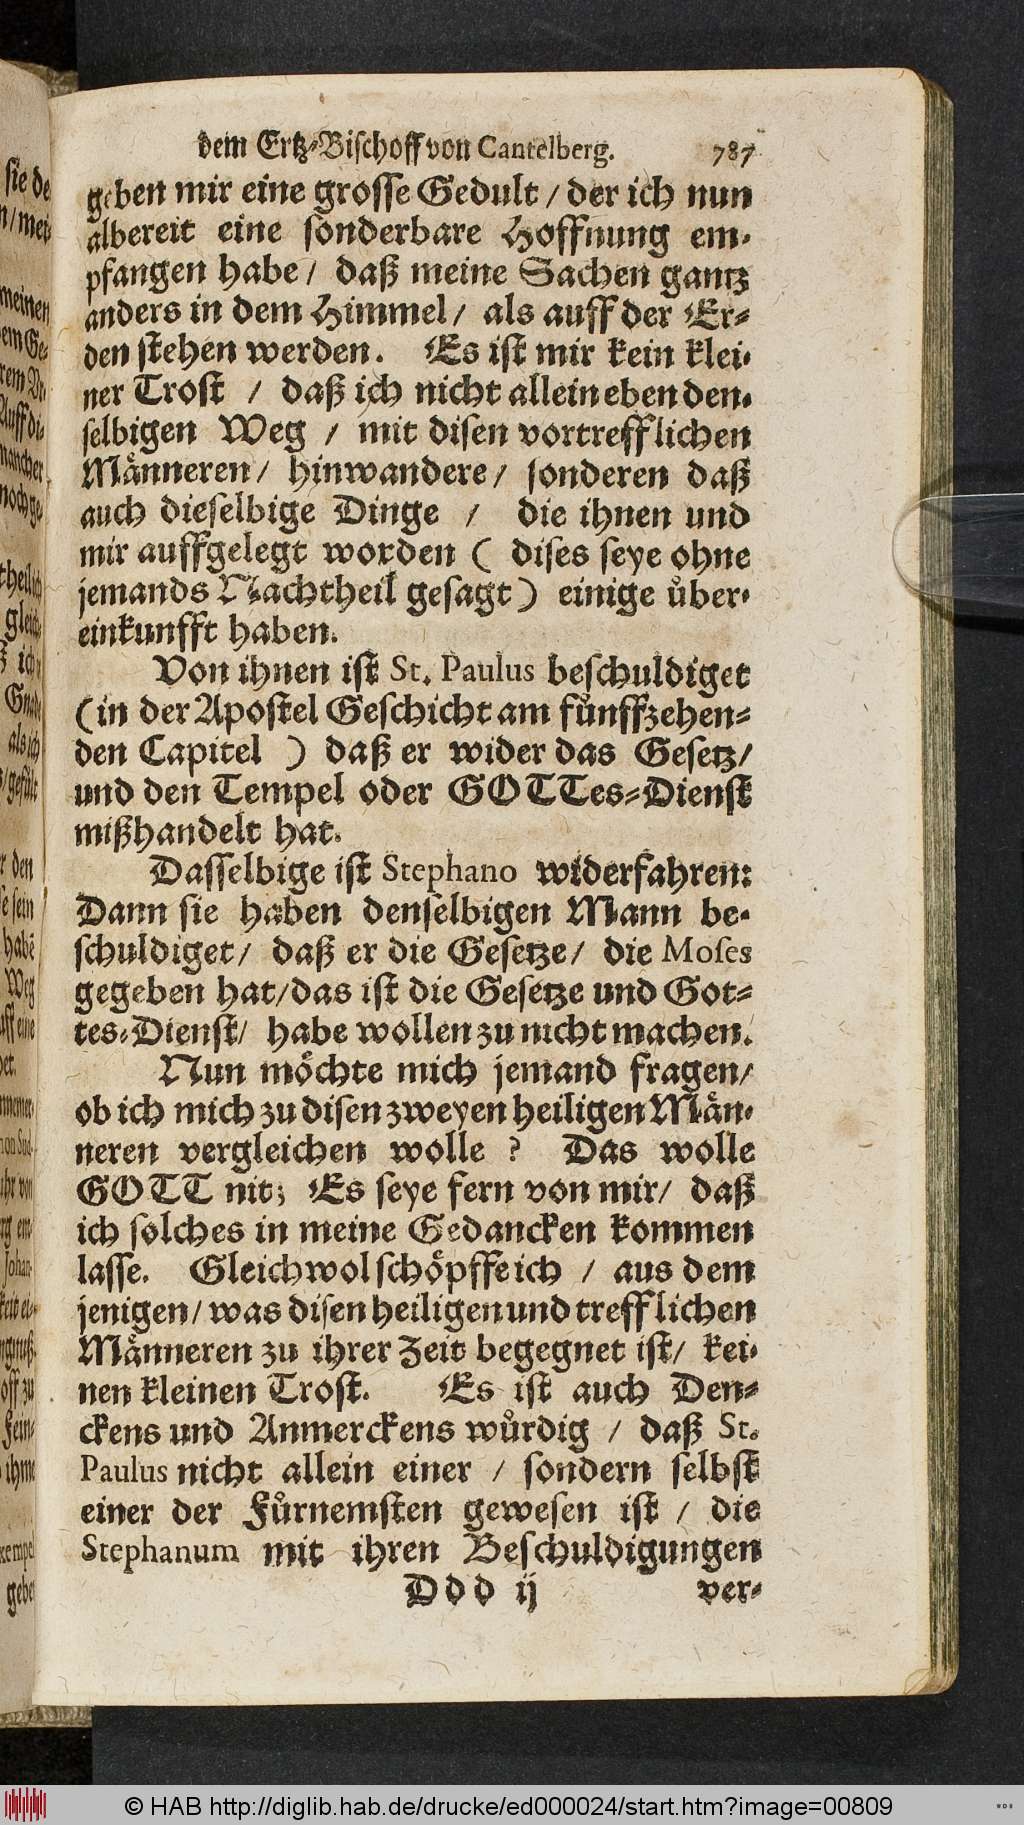 dem Ertz-Bischoff von Cantelberg. 787
geben mir eine grosse Gedult / der ich nun
albereit eine sonderbare Hoffnung em-
pfangen habe / daß meine Sachen gantz
anders in dem Himmel / als auff der Er-
den stehen werden. Es ist mir kein klei-
ner Trost / daß ich nicht allein eben den-
selbigen Weg / mit disen vortrefflichen
Männeren / hinwandere / sonderen daß
auch dieselbige Dinge / die ihnen und
mir auffgelegt worden ( dises seye ohne
jemands Nachtheil gesagt ) einige über-
einkunfft haben.
Von ihnen ist St. Paulus beschuldiget
( in der Apostel Geschicht am fünffzehen-
den Capitel ) daß er wider das Gesetz /
und den Tempel oder GOTTes-Dienst
mißhandelt hat.
Dasselbige ist Stephano widerfahren:
Dann sie haben denselbigen Mann be-
schuldiget / daß er die Gesetze / die Moses
gegeben hat / das ist die Gesetze und Got-
tes-Dienst / habe wollen zu nicht machen.
Nun möchte mich jemand fragen /
ob ich mich zu disen zweyen heiligen Män-
neren vergleichen wolle ? Das wolle
GOTT nit; Es seye fern von mir / daß
ich solches in meine Gedancken kommen
lasse. Gleichwol schöpffe ich / aus dem
jenigen / was disen heiligen und trefflichen
Männeren zu ihrer Zeit begegnet ist / kei-
nen kleinen Trost. Es ist auch Den-
ckens und Anmerckens würdig / daß St.
Paulus nicht allein einer / sondern selbst
einer der Fürnemsten gewesen ist / die
Stephanum mit ihren Beschuldigungen
Ddd ij ver-
© HAB http://diglib.hab.de/drucke/ed000024/start.htm?image=00809